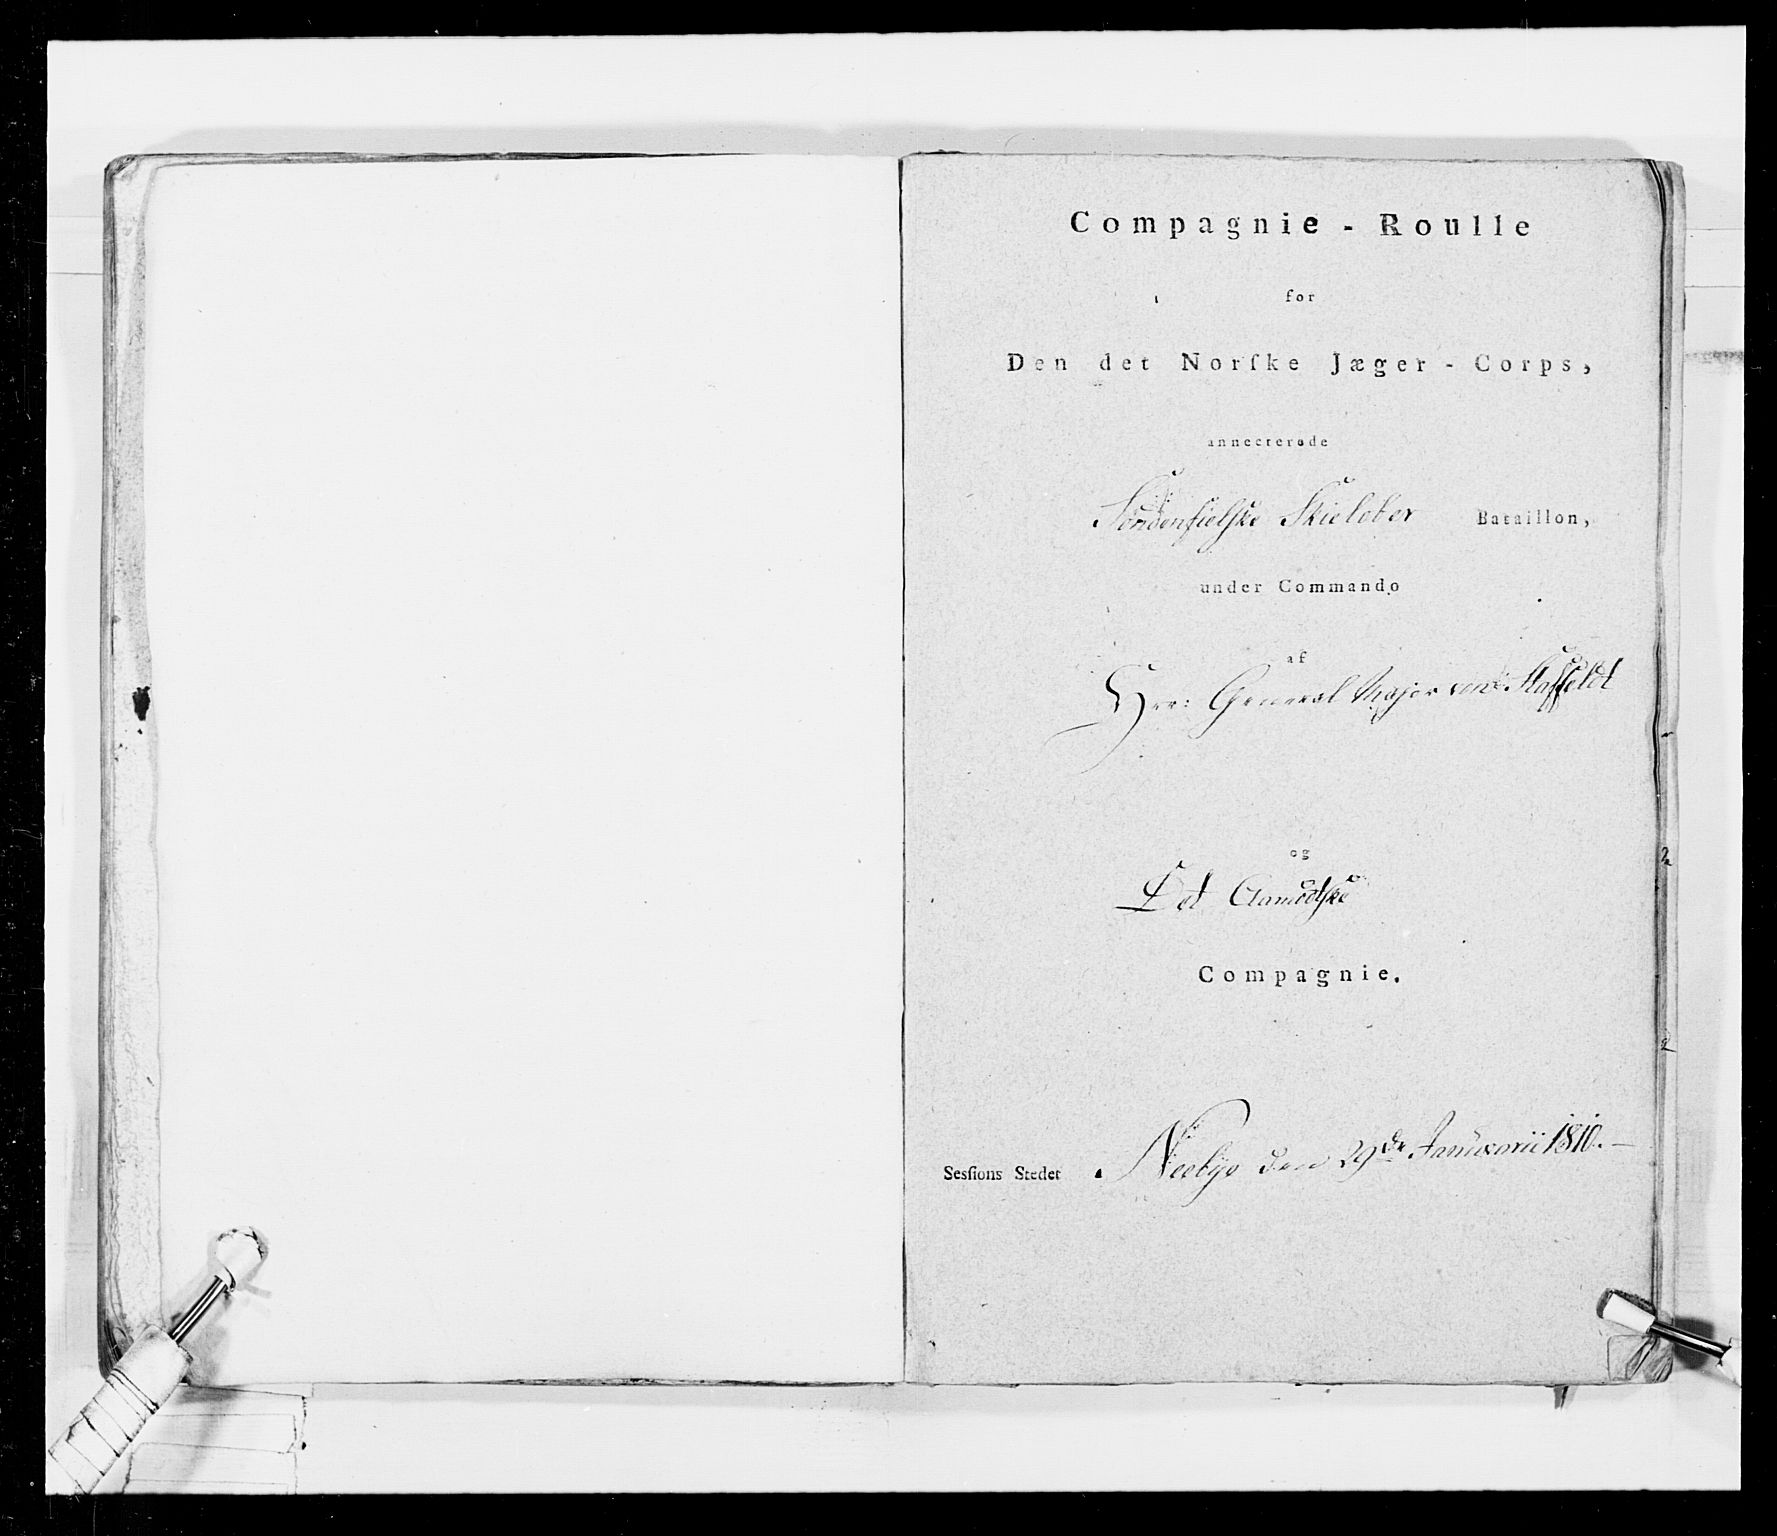 Compagnie - Roulle
for
Den det Norſke Jæger - Corps,
annecterede
Söndenfielske Skielöber Bataillon,
under Commando
af
Herr General Major von Staffeldt
og
Det Aamodtske
Compagnie.
Sesſions Stedet Neebye den 29de Januarii 1810. —